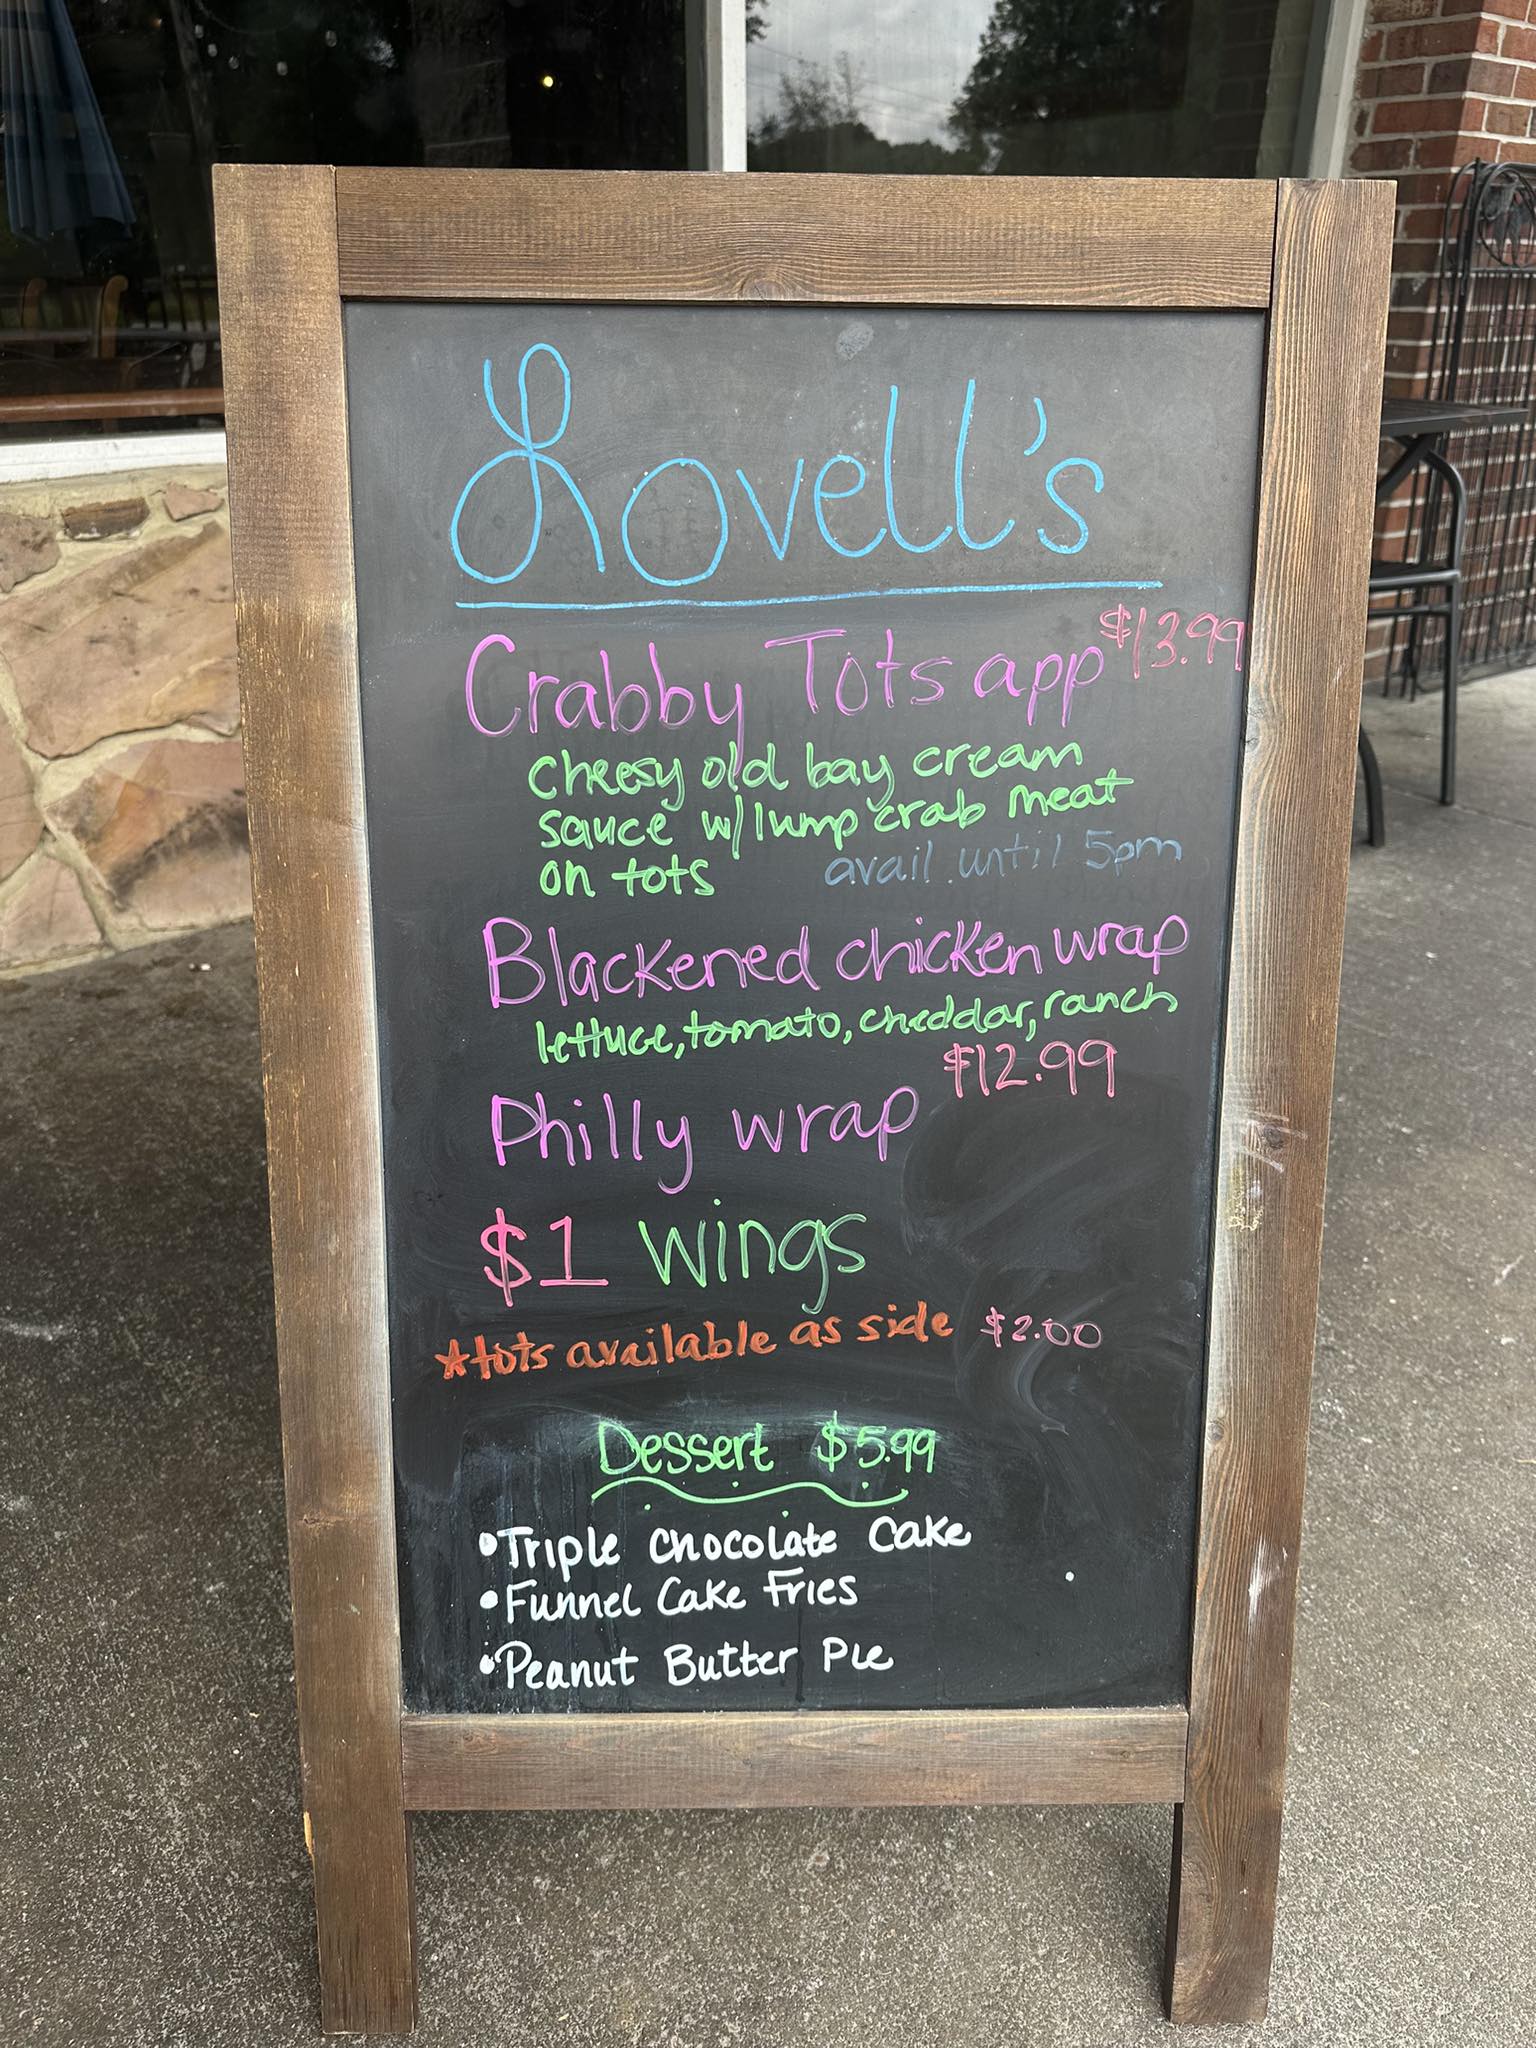 Lovell's
Crabby Tots app $13.99
cheesy old bay cream
sauce w/ lump crab meat
on tots avail. until 5pm
Blackened chicken wrap
lettuce, tomato, cheddar, ranch
$12.99
Philly wrap
$1 wings
*tots available as side $2.00
Dessert $5.99
•Triple Chocolate Cake
•Funnel Cake Fries
•Peanut Butter Pie